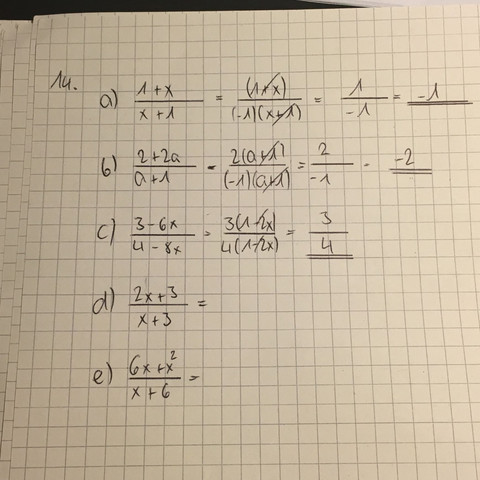 14.
a) (1+x)/(x+1) = (1+x)/((-1)(x+1)) = 1/-1 = -1
b) (2+2a)/(a+1) = 2(a+1)/((-1)(a+1)) = 2/-1 = -2
c) (3-6x)/(4-8x) = 3(1-2x)/(4(1-2x)) = 3/4
d) (2x+3)/(x+3) =
e) (6x+x²)/(x+6) =